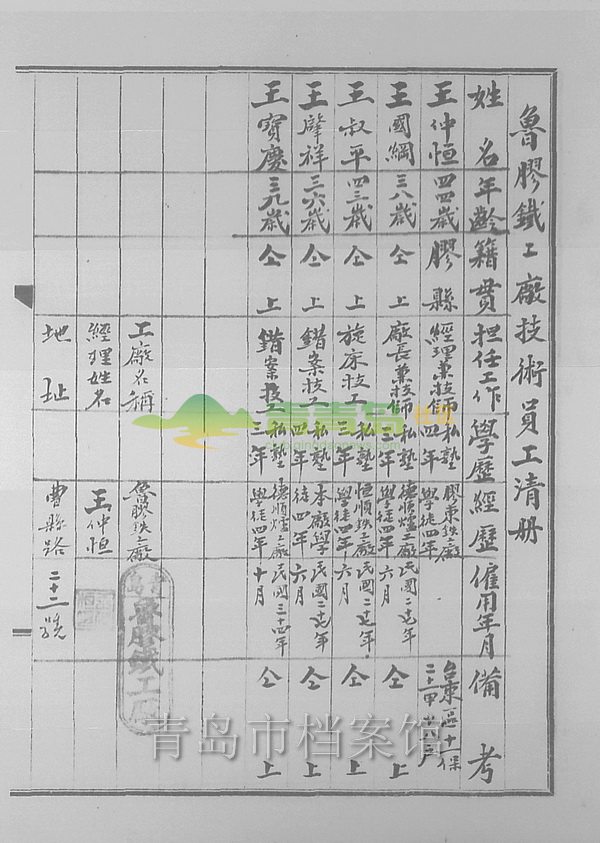 魯膠鐵工廠技術員工清册
姓名 年齡 籍貫 担任工作 學歷 經歷 僱用年月 備考
王仲恒 四四歲 膠縣 經理兼技師 私塾四年 膠東鉄工廠學徒四年 台東區十一保二十甲廿八戶
王國綱 三八歲 仝上 廠長兼技師 私塾三年 德順爐工廠學徒四年 民國二十七年六月 仝上
王叔平 四三歲 仝上 旋床技工 私塾三年 恒順鉄工廠學徒四年 民國二十七年六月 仝上
王肇祥 三六歲 仝上 錯案技工 私塾四年 本廠學徒四年 民國二十七年六月 仝上
王寶慶 三九歲 仝上 錯案技工 私塾三年 德順爐工廠學徒四年 民國三十四年十月 仝上
工廠名稱 魯膠鉄工廠
經理姓名 王仲恒
地址 曹縣路二十二號
青島
魯膠鐵工廠
青岛市档案馆